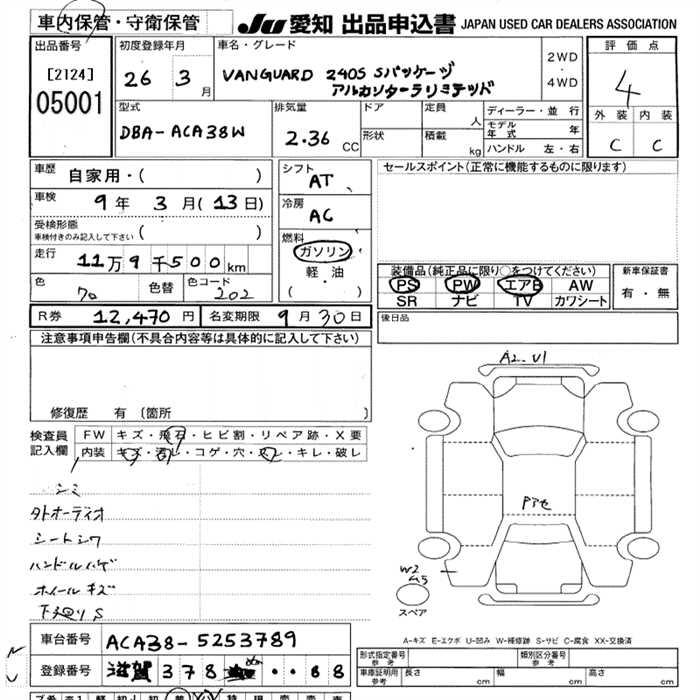 車内保管・守衛保管
JU 愛知 出品申込書 JAPAN USED CAR DEALERS ASSOCIATION
出品番号
[2124]
05001
初度登録年月
26 3 月
車名・グレード
VANGUARD 240S Sパッケージ
アルカンターラリミテッド
2WD
・
4WD
評価点
4
外装 内装
C C
型式
DBA-ACA38W
排気量
2.36 CC
ドア
形状
定員
人
積載
kg
ディーラー・並行
モデル年式 年
ハンドル 左・右
車歴
自家用・( )
車検
9年 3月(13日)
受検形態
車検付きのみ記入して下さい ( )
走行
11万9千500km
色
70
色替
色コード
202
シフト
AT
冷房
AC
燃料
ガソリン
軽・油
( ・ )
セールスポイント(正常に機能するものに限ります)
装備品(純正品に限り○をつけてください)
PS PW エアB AW
SR ナビ TV カワシート
新車保証書
有・無
R券 12,470円 名変期限 9月30日
後日品
注意事項申告欄(不具合内容等は具体的に記入して下さい)
修復歴 有 (箇所 )
検査員
記入欄
FW キズ・飛石・ヒビ割・リペア跡・X要
内装 キズ・汚レ・コゲ・穴・スレ・キレ・破レ
シミ
タトオーディオ
シートシワ
ハンドルハゲ
ホイールキズ
下廻りS
A2 U1
Pアセ
W2
スペア
A-キズ E-エクボ U-凹み W-補修跡 S-サビ C-腐食 XX-交換済
車台番号 ACA38-5253789
登録番号 滋賀 378 ‥88
形式指定番号
参考
類別区分番号
参考
車庫証明用
参考
長さ cm 幅 cm 高さ cm